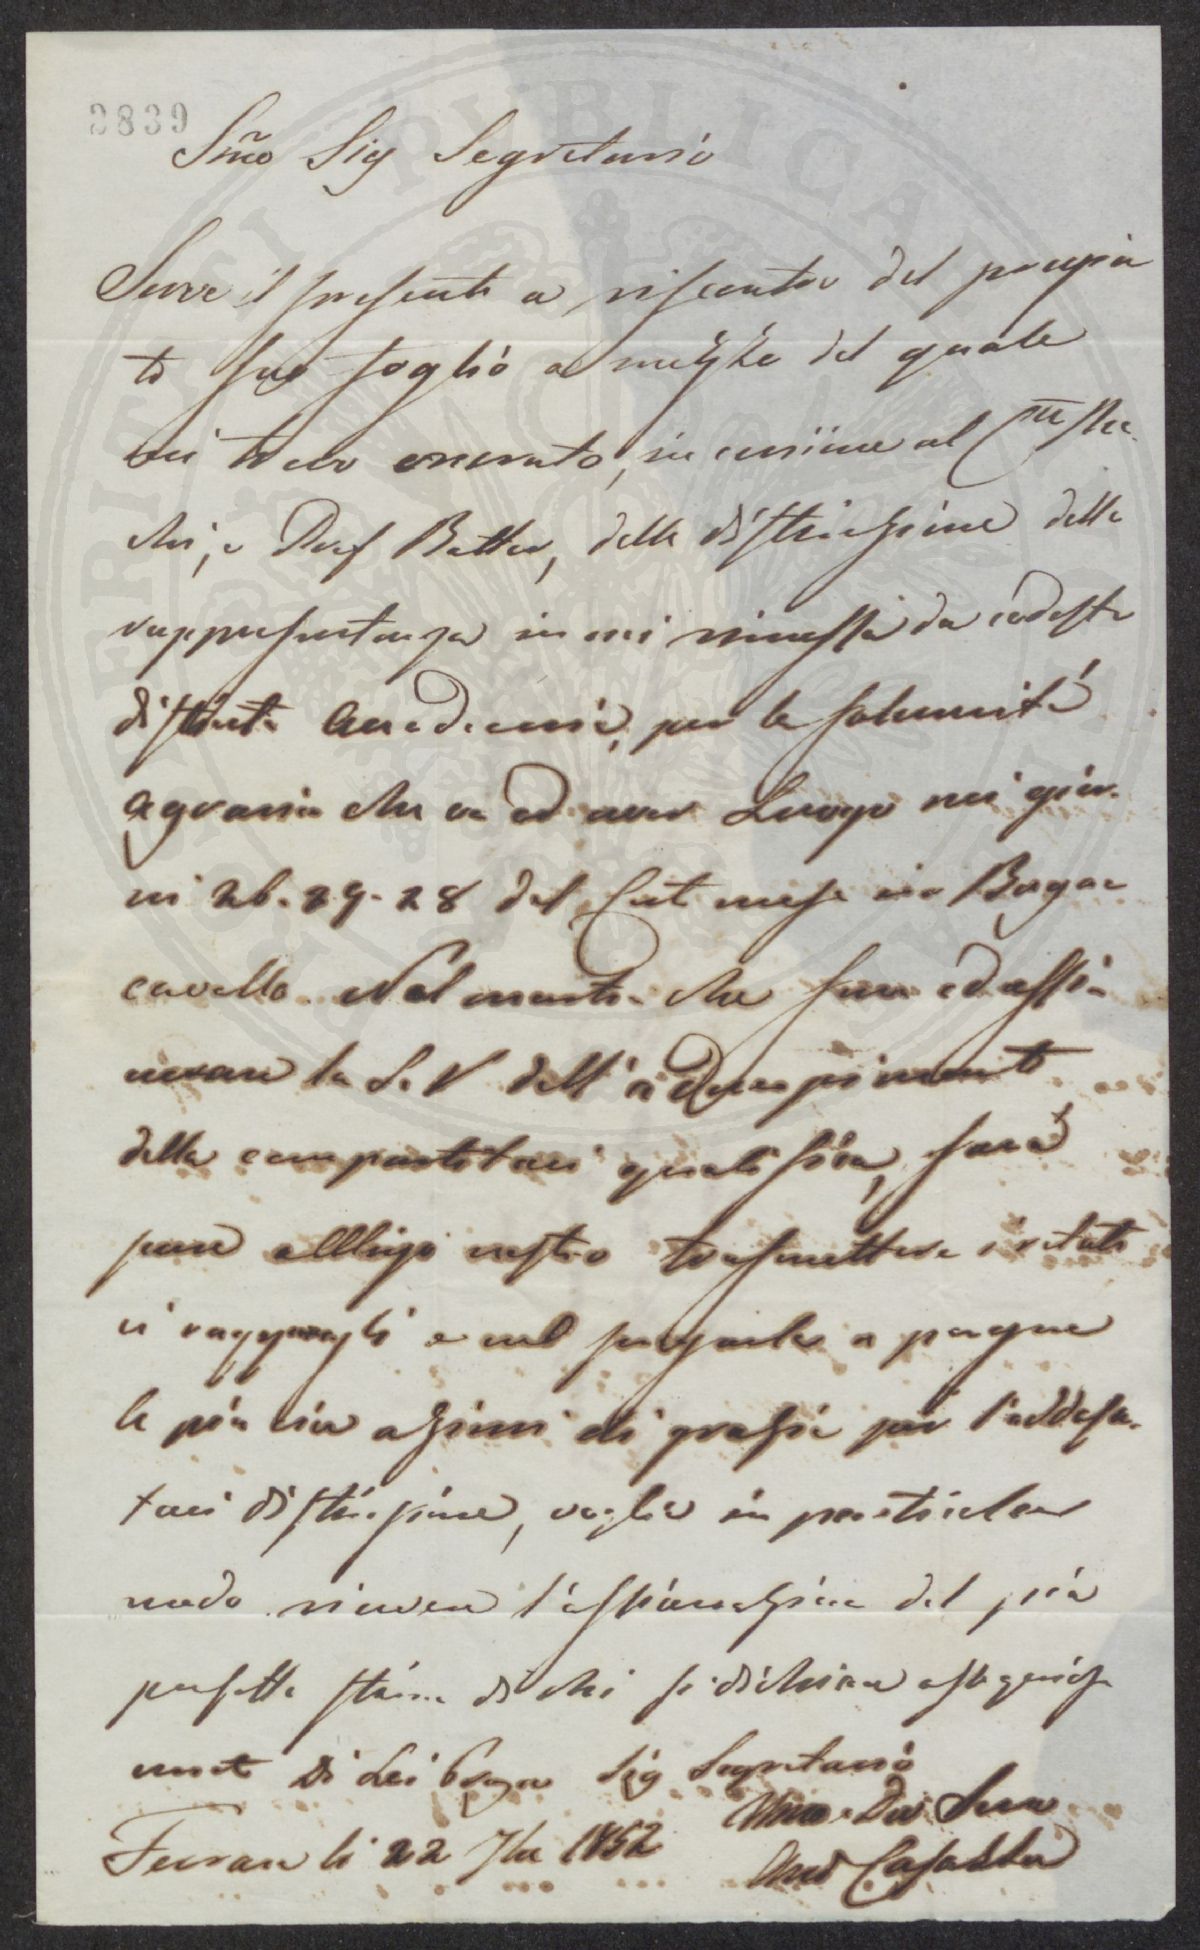 3839
Sig Segretario
Serve il presente a riscontro del pregia
to suo foglio a mezzo del quale
mi trovo onorato, in unione al
chi, e Botter, della distinzione della
rappresentanza in noi rimessa da codesta
distinta Accademia, per la solennità
agraria che va ad aver Luogo nei gior-
ni 26. 27. 28 del Cor.t mese in Bagna
cavallo. Nel mentre che ad assi-
curare la S. V. dell'adempimento
della compartitaci qualifica, sarà
pure obbligo nostro trasmettere
ci ragguagli e nel pregarla a porgere
le più vive azioni di grazie per l'addossa-
taci distinzione, voglia in particolar
modo ricevere l'espressione del più
perfetta stima di chi si dichiara ossequiosa
mente Di Lei Sig Segretario
Dev Servo
Ferrara li 22 7bre 1852
Casazza